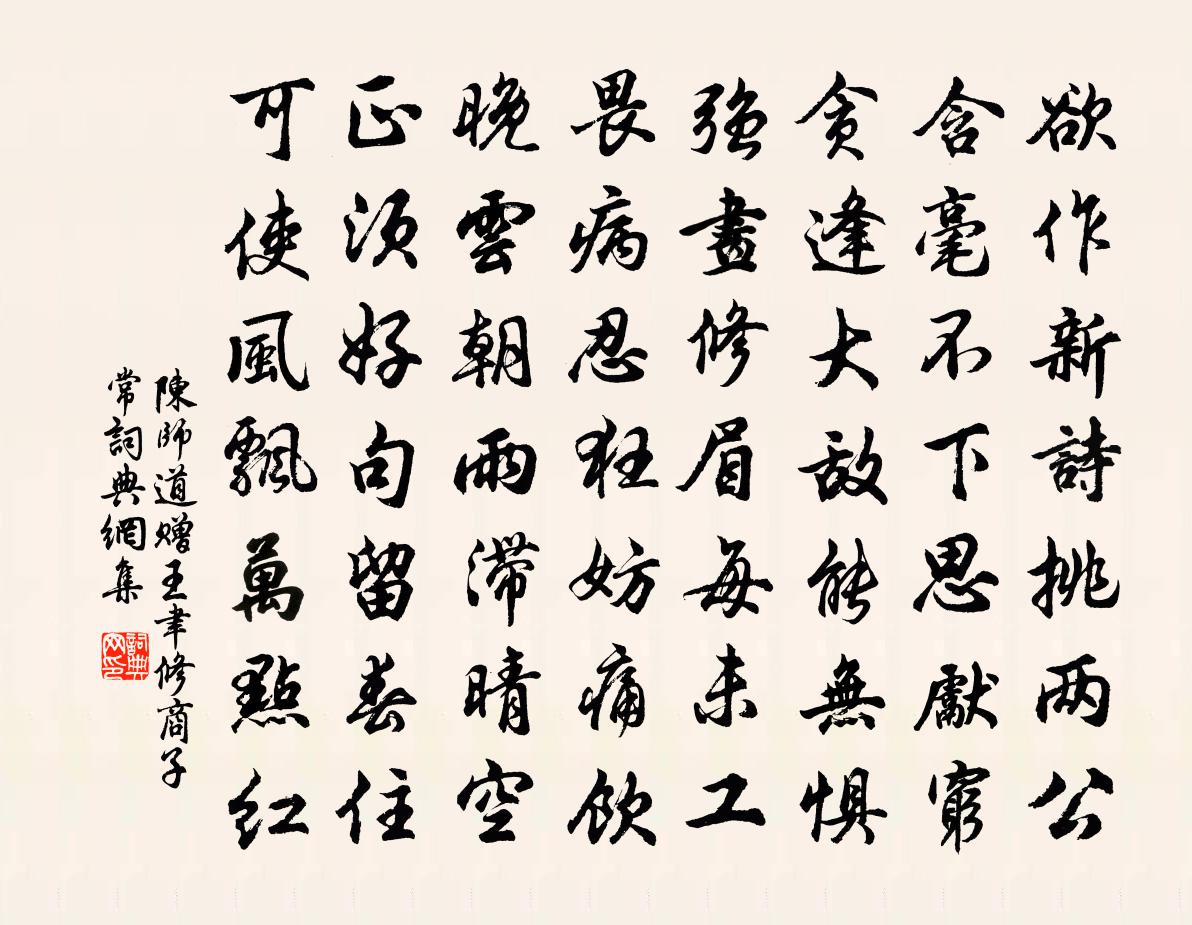 欲作新詩挑两公
含毫不下思獻窮
貪逢大敌能無惧
強畫修眉每未工
畏病忍狂妨痛飲
晚雲朝雨滞晴空
正須好句留春住
可使風飄萬點紅
陳師道赠王聿修商子
常詞典網集
詞典网印